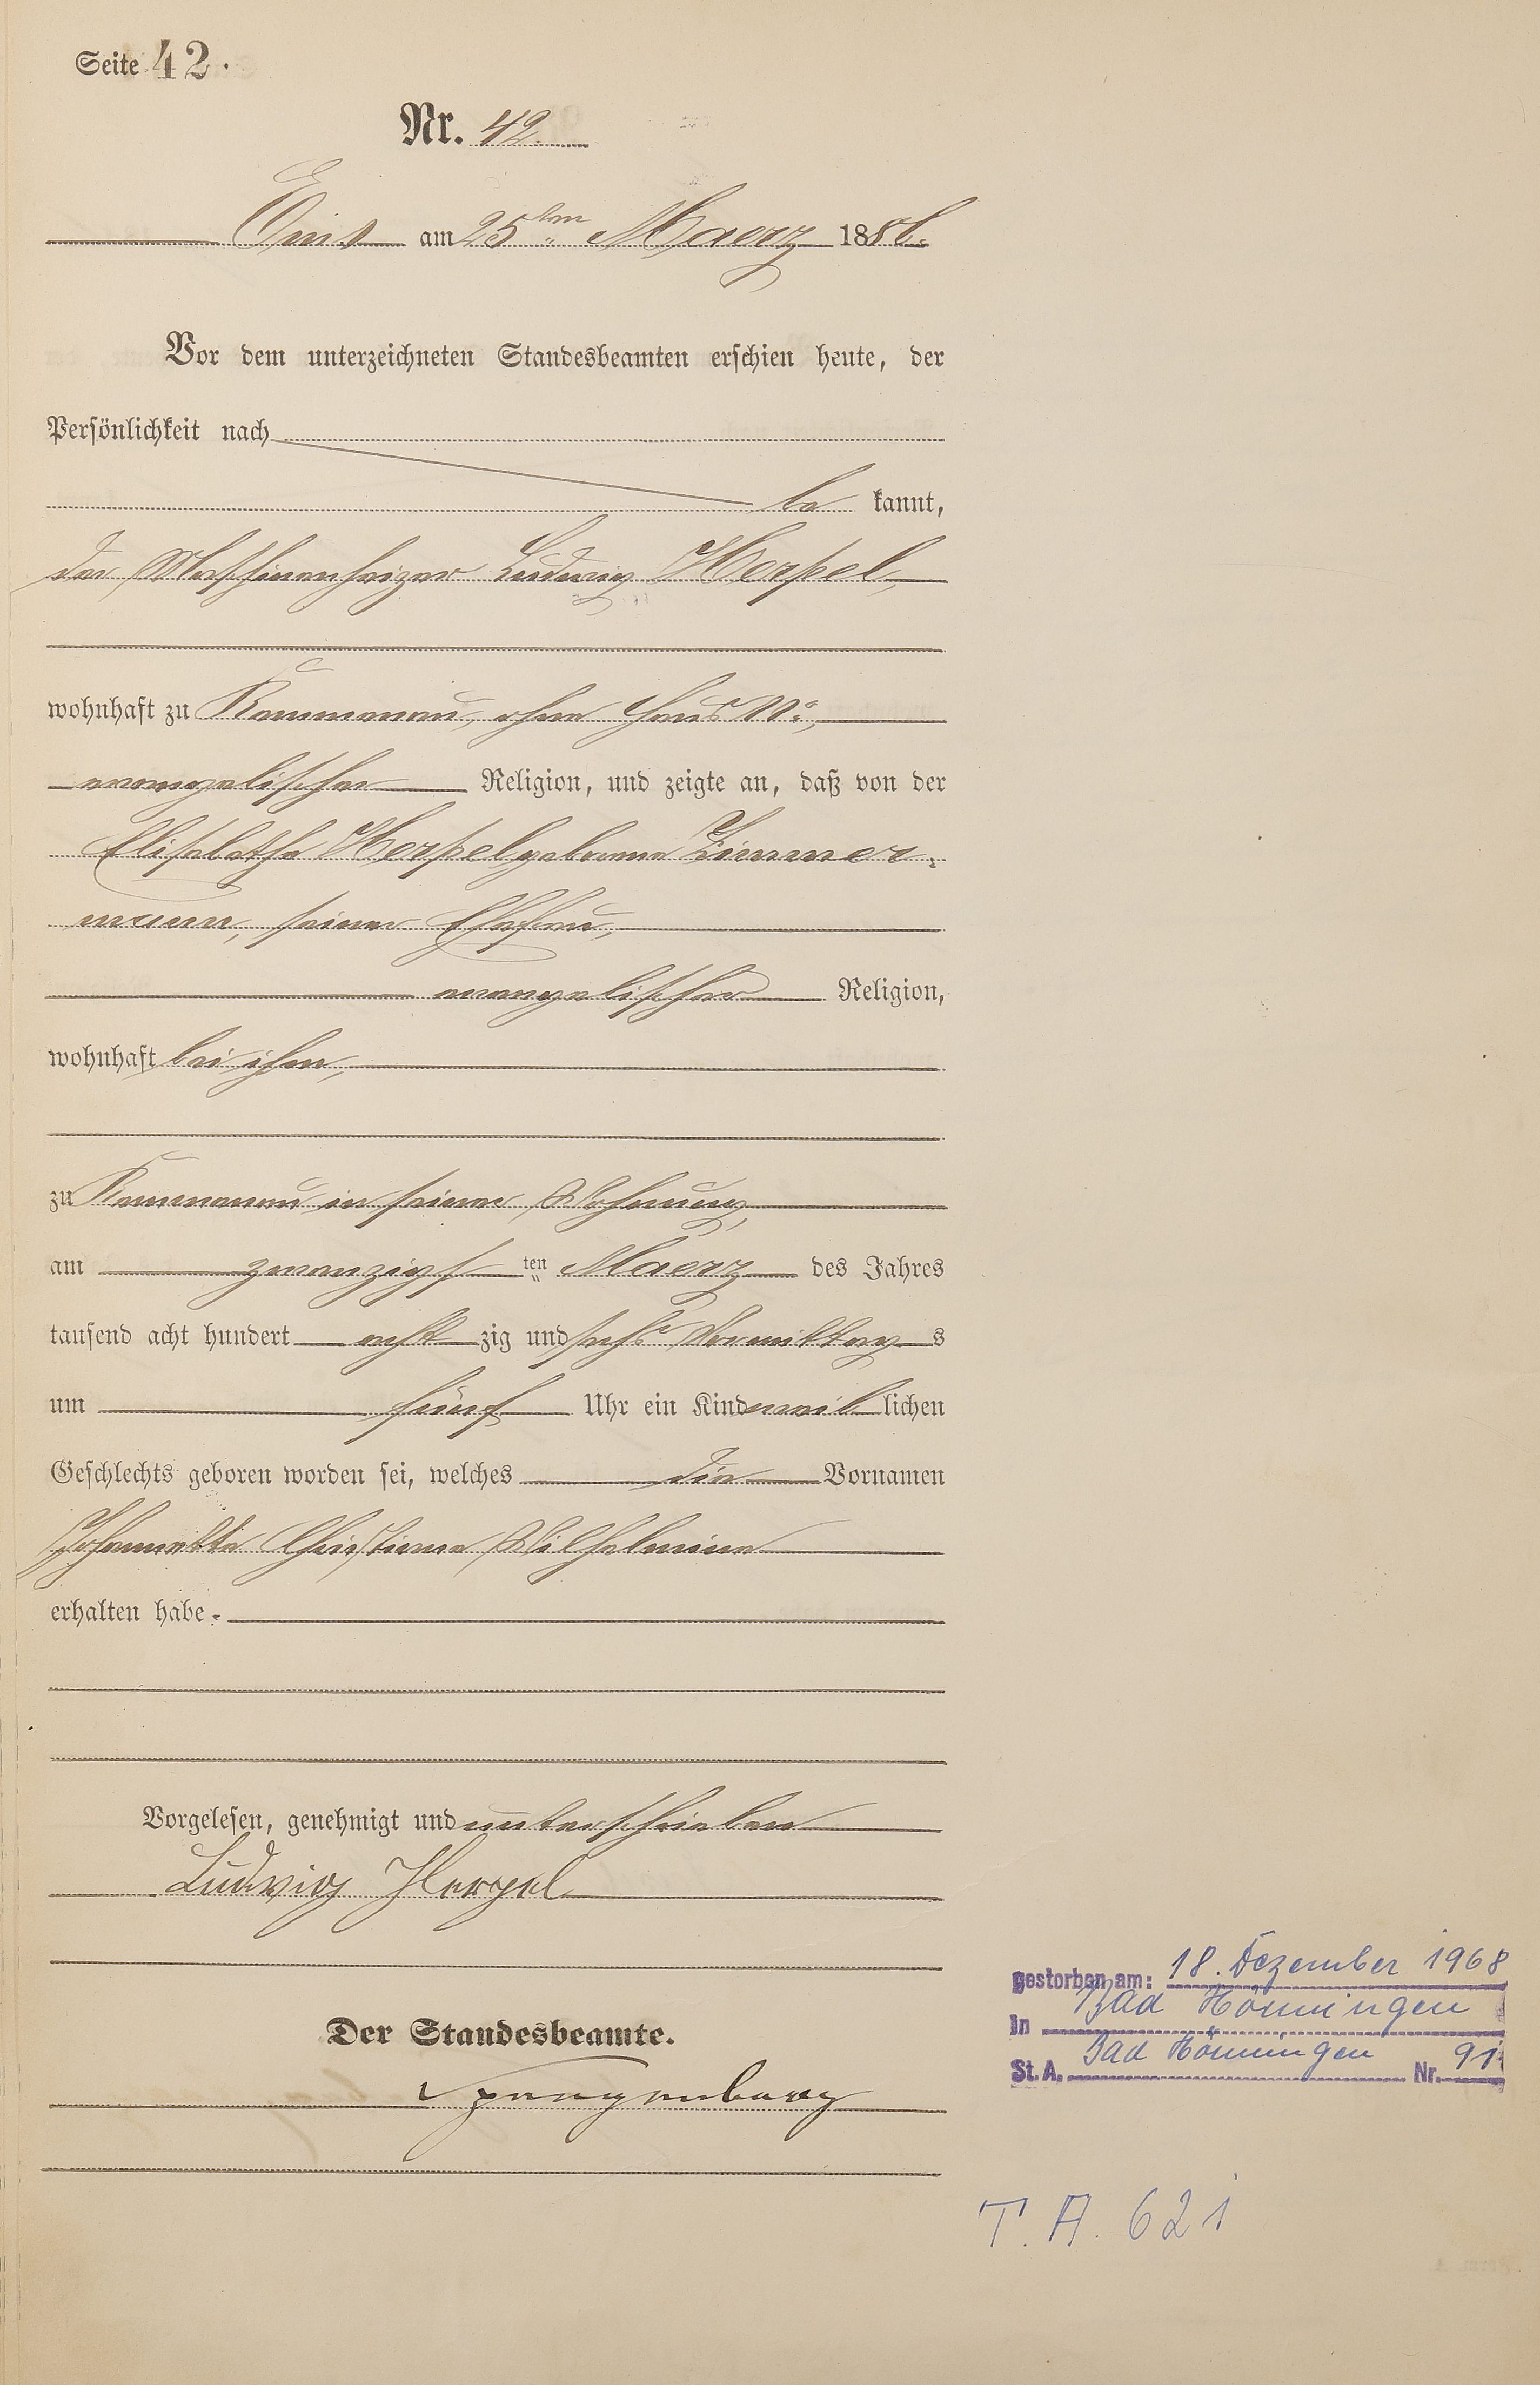 Seite 42.
Nr. 42.
Ems am 25ten Maerz 1886.
Vor dem unterzeichneten Standesbeamten erschien heute, der
Persönlichkeit nach
be kannt,
der Maschinenheizer Ludwig Herpel,
wohnhaft zu Kemmenau, ohne Haus No,
evangelischer Religion, und zeigte an, daß von der
Elisabetha Herpel geborene Zimmer-
mann, seiner Ehefrau,
evangelischer Religion,
wohnhaft bei ihm,
zu Kemmenau in seiner Wohnung,
am zwanzigsten Maerz des Jahres
tausend acht hundert acht zig und sechs Vormittags
um fünf Uhr ein Kind weiblichen
Geschlechts geboren worden sei, welches die Vornamen
Johannette Christiane Wilhelmine
erhalten habe.
Vorgelesen, genehmigt und unterschrieben
Ludwig Herpel
Der Standesbeamte.
Spangenberg
gestorben am: 18. Dezember 1968
In Bad Hönningen
St. A. Bad Hönningen Nr. 91
T. A. 621